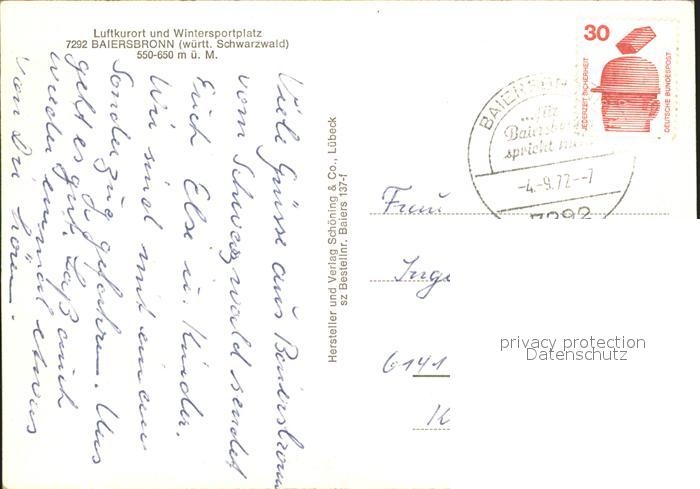 Luftkurort und Wintersportplatz
7292 BAIERSBRONN (württ. Schwarzwald)
550-650 m ü. M.
Viele Grüsse aus Baiersbronn
vom Schwarzwald sendet
Euch Else u. Kinder.
Wir sind mit einem
Sonderzug gefahren. Uns
geht es gut. Laß auch
wieder einmal etwas
von Dir hören.
Hersteller und Verlag Schöning & Co., Lübeck
sz Bestellnr. Baiers 137-f
30
JEDERZEIT SICHERHEIT
DEUTSCHE BUNDESPOST
...für
spricht
-4.-9.72.--7
7292
Frau
Inge
6141
K
privacy protection
Datenschutz